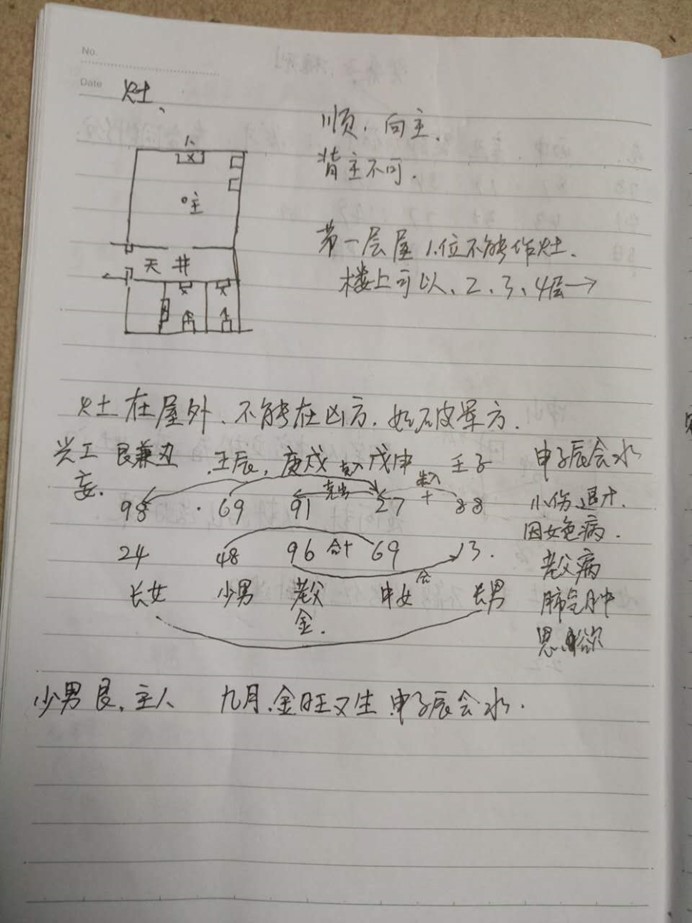 No.
Date
灶、
顺,向主.
背主不可.
主
天井
第一层屋 位不能作灶.
楼上可以、2、3、4层→
灶在屋外、不能在凶方,如破军方.
兴工 艮兼丑 壬辰,庚戌 戊申 壬子 申子辰会水
98 · 69 91 27 + 88 小伤、退
因女色病.
24 48 96 合十 69 13. 老父病
长女 少男 老父 中女 合 长男 肺气肿
金. 思 欲
少男艮,主人 九月,金旺又生,申子辰会水.